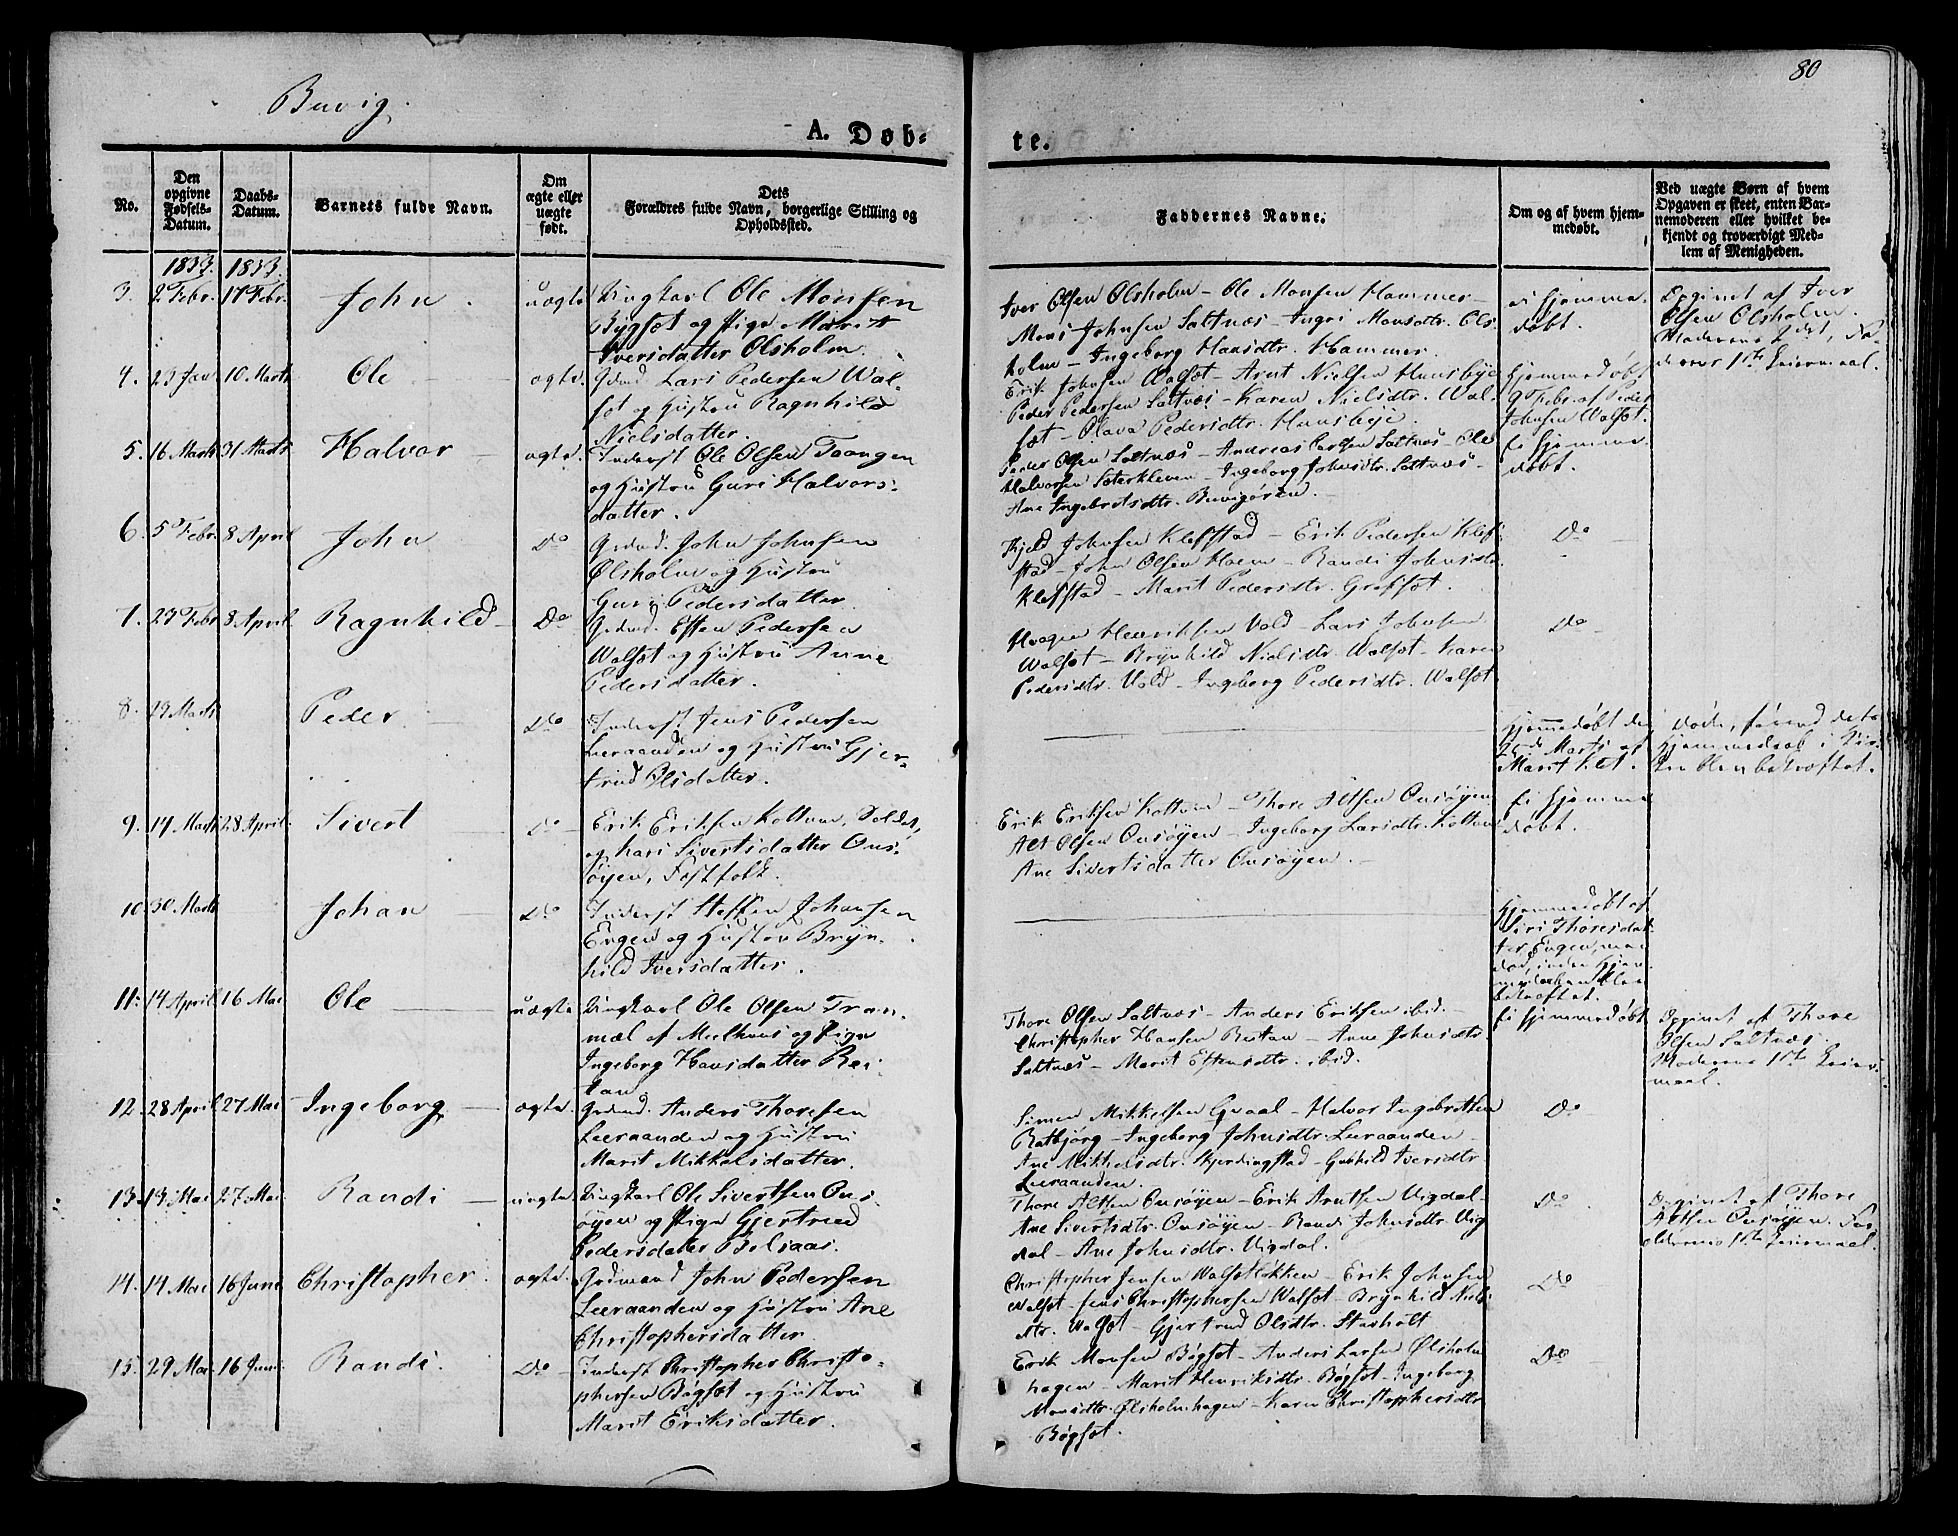 80
Buvig.
A. Døb-
te.
No.
Den opgivne Fødsels-Datum.
Daabs-Datum.
Barnets fulde Navn.
Om ægte eller uægte født.
Dets Forældres fulde Navn, borgerlige Stilling og Opholdssted.
Faddernes Navne.
Om og af hvem hjemmedøbt.
Ved uægte Børn af hvem Opgaven er skeet, enten Barnemoderen eller hvilket bekjendt og troværdigt Medlem af Menigheden.
1833. 1833.
3. 2 Febr. 17 Febr. John. uægte Ungkarl Ole Monsen
Bygset og Pige Marit
Iversdatter Olsholm.
Iver Olsen Olsholm - Ole Monsen Hammer -
Mons Johnsen Saltnæs - Ingri Monsdtr. Ols-
holm - Ingeborg Hansdtr. Hammer.
ei hjemme-
døbt.
Opgivet af Iver
Olsen Olsholm.
Moderens 2det, Fa-
derens 1ste Leiermaal.
4. 23 Jan. 10 Marts Ole ægte. Grdmd. Lars Pedersen Wal-
set og Hustru Ragnhild
Nielsdatter.
Erik Johnsen Walset - Arnt Nielsen Hunsbye
Peder Pedersen Saltnæs - Karen Nielsdtr. Wal-
set - Olava Pedersdtr. Hunsbye.
Hjemmedøbt
9 Febr. af Peder
Johnsen Walset.
5. 16 Marts 31 Marts Halvor ægte. Inderst Ole Olsen Taangen
og Hustru Guri Halvors-
datter.
Peder Olsen Saltnæs - Andreas Larsen Saltnæs - Ole
Halvorsen Saterkleven - Ingeborg Johnsdtr. Saltnæs -
Ane Ingebretsdtr. Buvigøren.
Ei hjemme-
døbt.
6. 5 Febr. 8 April John Do Grdmd. John Johnsen
Ølsholm og Hustru
Guri Pedersdatter.
Kjeld Johnsen Klefstad - Erik Pedersen Klef-
stad - John Olsen Hoem - Randi Johnsdtr.
Klefstad - Marit Pedersdtr. Grefset.
Do
7. 27 Febr 8 April Ragnhild Do Grdmd. Esten Pedersen
Walset og Hustru Anne
Pedersdatter.
Haagen Henriksen Vold - Lars Johnsen
Walset - Brynhild Nielsdtr. Walset - Karen
Pedersdtr. Vold - Ingeborg Pedersdtr. Walset
Do
8. 29 Marts Peder Do Inderst Jens Pedersen
Leeraanden og Hustru Gjer-
trud Olsdatter.
Hjemmedøbt den
Marts af
Marit
Døde, førend dets
Hjemmedaab i Kir-
ken blev bekræftet.
9. 14 Marts 28 April. Sivert Do Erik Eriksen Kottum, Soldat,
og Kari Sivertsdatter Ons-
øyen, Festfolk.
Erik Eriksen Kottum - Thore Altsen Onsøyen
Alt Olsen Onsøyen - Ingeborg Larsdtr. Kottum
Ane Sivertsdatter Onsøyen.
Ei hjemme-
døbt.
10. 30 Marts Johan Do Inderst Steffen Johansen
Engen og Hustru Bryn-
hild Iversdatter.
Hjemmedøbt af
Siri Thoresdat-
ter Engen, men
død, inden Hjem-
medaaben blev
bekræftet.
11. 14 April 16 Mai Ole uægte Ungkarl Ole Olsen Tran-
mæl af Meelhuus og Pige
Ingeborg Hansdatter Rus-
tan.
Thore Olsen Saltnæs - Anders Eriksen ibid. -
Christopher Hansen Rustan - Anne Johnsdtr.
Saltnæs - Marit Estensdtr. ibid.
Ei hjemmedøbt
Opgivet af Thore
Olsen Saltnæs.
Moderens 1ste Leier-
maal.
12. 28 April 27 Mai Ingeborg ægte. Grdmd. Anders Thoresen
Leeraanden og Hustru
Marit Mikkelsdatter.
Simen Mikkelsen Gvaal - Halvor Ingebretsen
Ratbjørg - Ingeborg Johnsdtr. Leeraanden -
Ane Mikkelsdtr. Skjerdingstad - Gunhild Iversdtr
Leeraanden.
Do
13. 13 Mai 27 Mai. Randi uægte. Ungkarl Ole Sivertsen Ons-
øyen og Pige Gjertrud
Pedersdatter Belsaas.
Thore Altsen Onsøyen - Erik Arntsen Vigdal -
Ane Sivertsdtr. Onsøyen - Randi Johnsdtr. Vig-
dal - Ane Johnsdtr. Vigdal.
Do
Opgivet af Thore
Altsen Onsøyen. For-
ældrenes 1ste Leiermaal.
14. 14 Mai 16 Juni Christopher. ægte. Grdmand John Pedersen
Leeraanden og Hustru Ane
Christophersdatter.
Christopher Jensen Walsetløkken - Erik Johnsen
Walset - Jens Christophersen Walset - Brynhild Niels-
dtr. Walset - Gjertrud Olsdtr. Starholt
Do
15. 29 Mai. 16 Juni. Randi. Do Inderst Christopher Christo-
phersen Bøgset og Hustru
Marit Eriksdatter.
Erik Monsen Bøgset - Anders Larsen Ølsholm
hagen - Marit Henriksdtr. Bøgset - Ingeborg
Monsdtr. Ølsholmhagen - Karen Christophersdtr
Bøgset.
Do